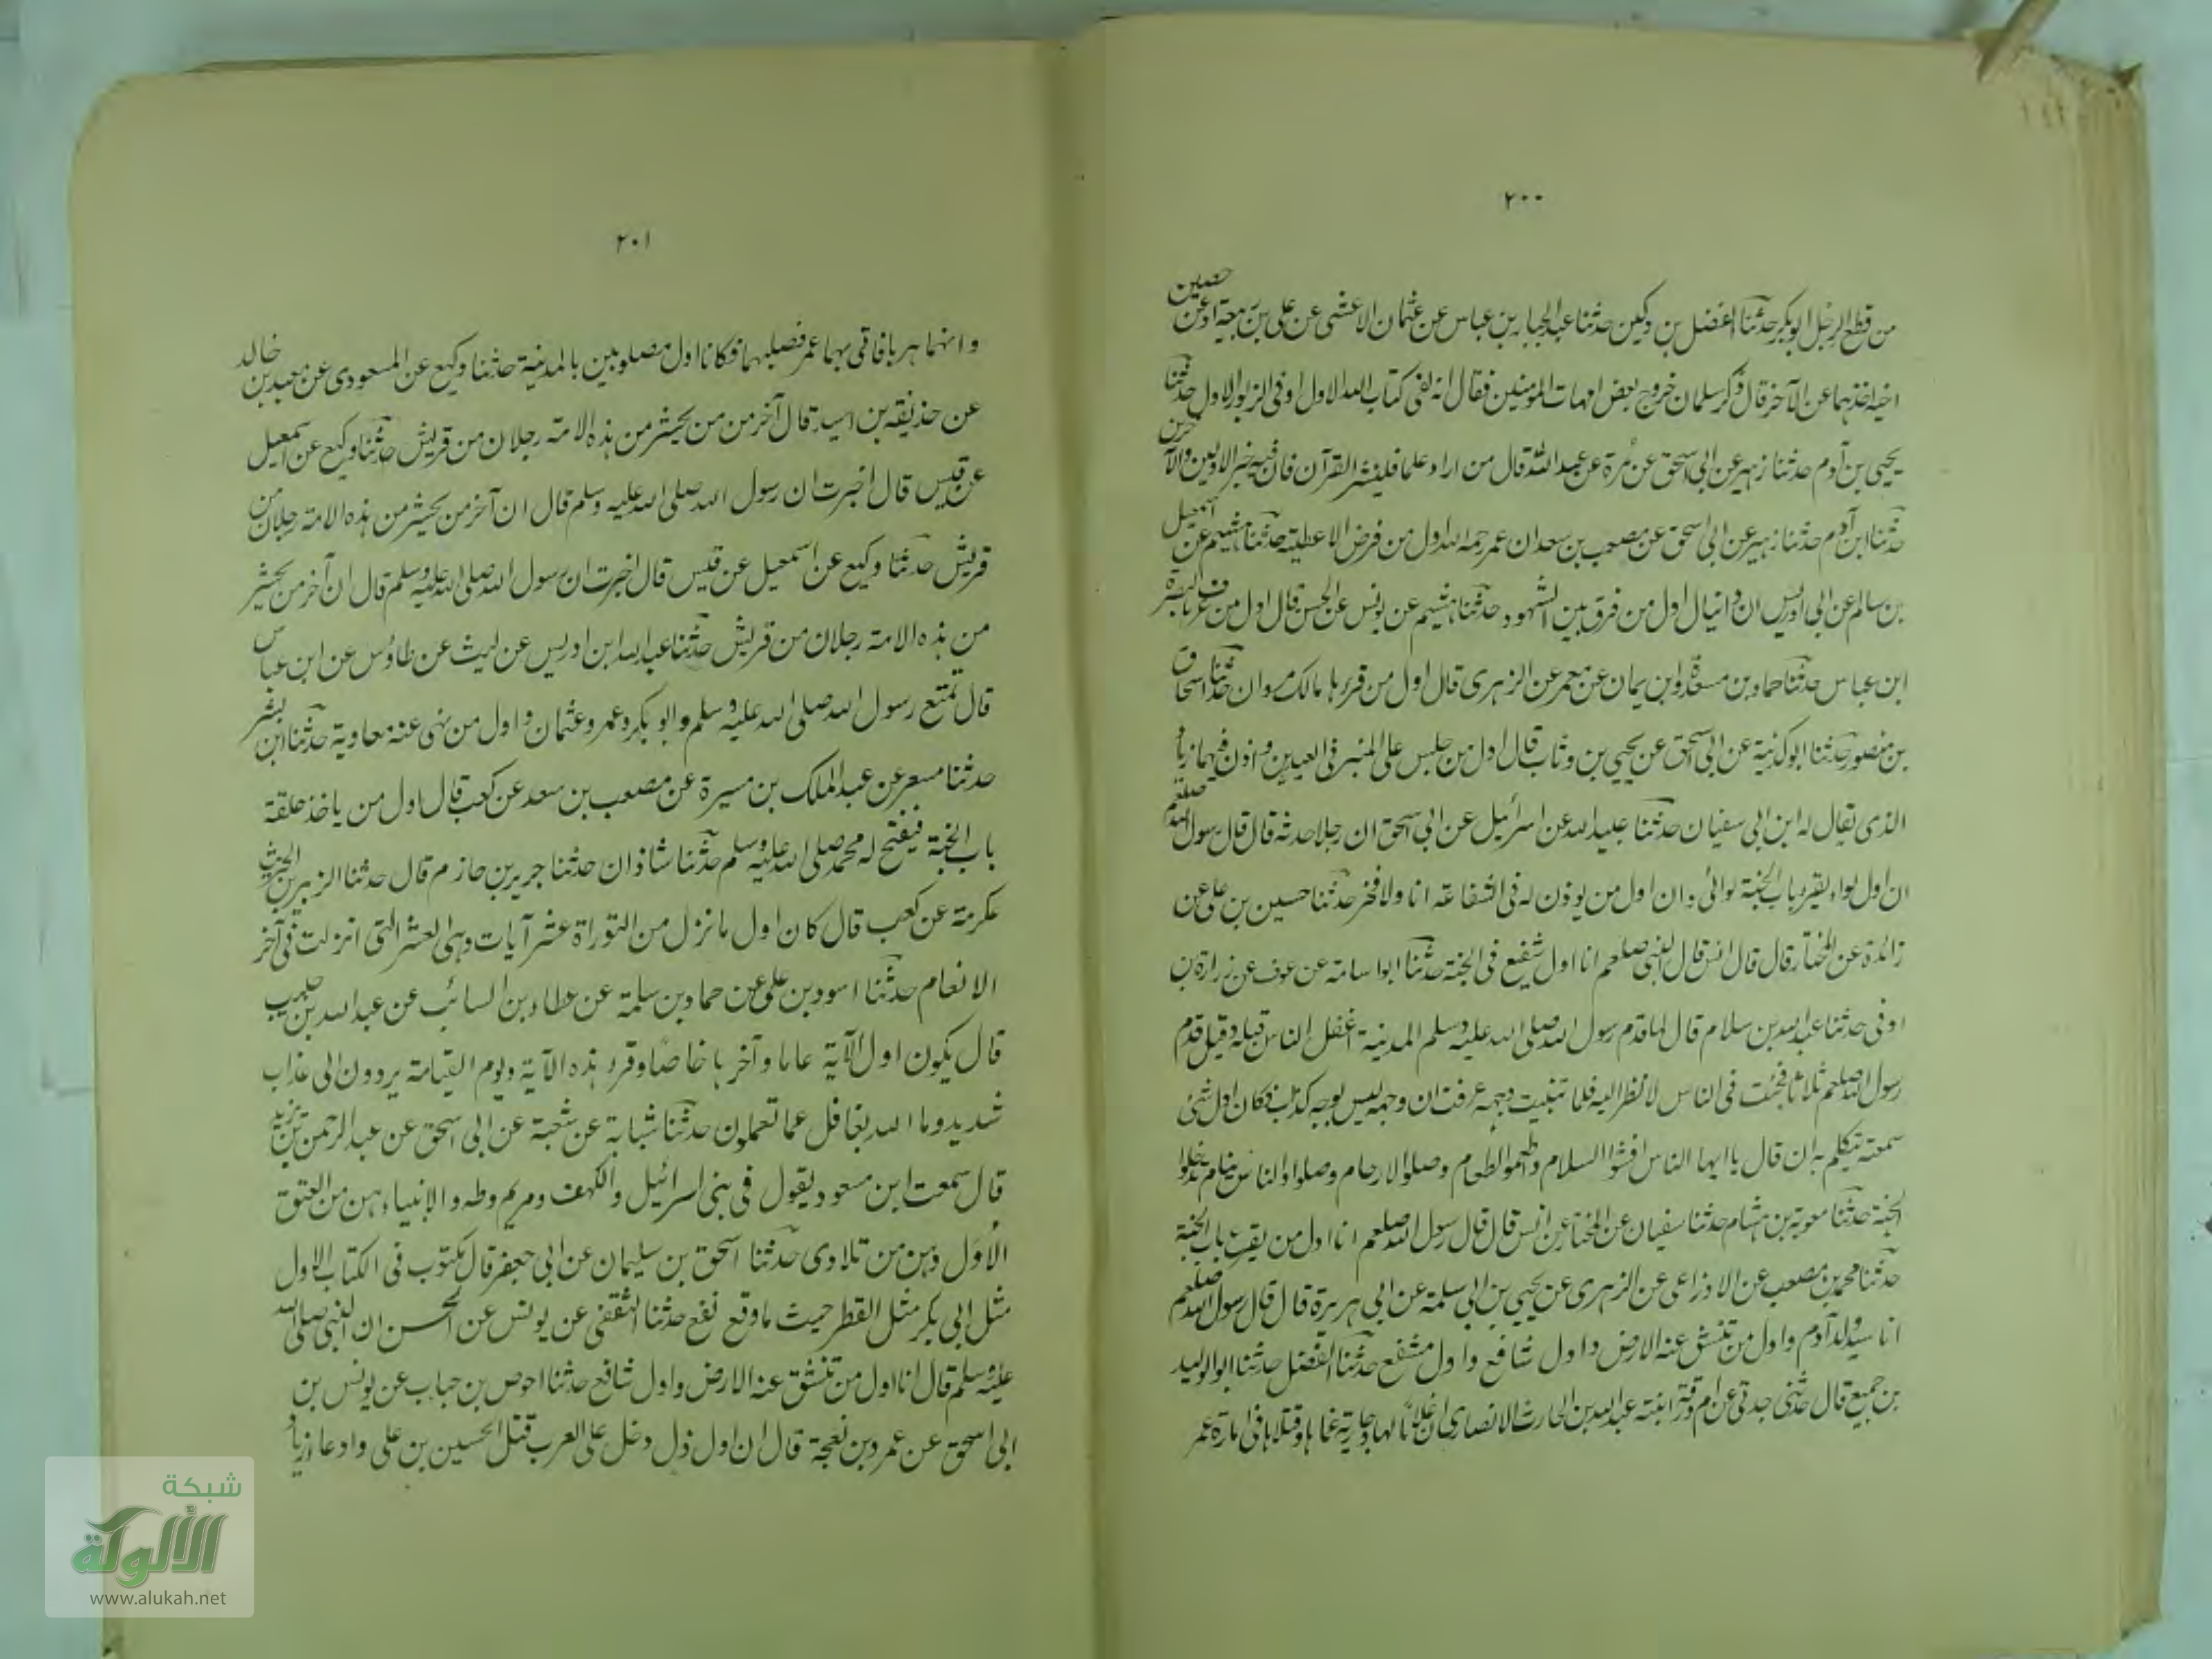 ٢٠٠
من قطع الرجل ابو بكر حدثنا الفضل بن دكين حدثنا عبد الجبار بن عباس عن عثمان الاعشى عن على بن ربيعة او عن حصين
اخيه اخذهما عن الآخر قال ذكر سلمان خروج بعض امهات المؤمنين فقال انه لفى كتاب الله الاول او فى الزبور الاول حدثنا
يحيى بن آدم حدثنا زهير عن ابى اسحق عن مرة عن عبد الله قال من اراد علما فليثر القرآن فان فيه خبر الاولين والآخرين
حدثنا ابن آدم حدثنا زهير عن ابى اسحق عن مصعب بن سعد ان عمر رحمه الله اول من فرض الاعطية حدثنا هشيم عن اسمعيل
بن سالم عن ابى ادريس ان دانيال اول من فرق بين الشهود حدثنا هشيم عن يونس عن الحسن قال اول من عرف بالبصرة
ابن عباس حدثنا حماد بن مسعدة وابن يمان عن معمر عن الزهرى قال اول من قرء ها مالك مروان حدثنا اسحاق
بن منصور حدثنا ابو كدنية عن ابى اسحق عن يحيى بن وثاب قال اول من جلس على المنبر فى العيدين واذن فيهما زياد
الذى يقال له ابن ابى سفيان حدثنا عبيد الله عن اسرائيل عن ابى اسحق ان رجلا حدثه قال قال رسول الله صلعم
ان اول لواء يقرع باب الجنة لوائى وان اول من يوذن له فى الشفاعة انا ولا فخر حدثنا حسين بن على عن
زائدة عن المختار قال قال انس قال النبى صلعم انا اول شفيع فى الجنة حدثنا ابو اسامة عن عوف عن زرارة بن
اوفى حدثنا عبد الله بن سلام قال لما قدم رسول الله صلى الله عليه وسلم المدينة انجفل الناس قبله وقيل قدم
رسول الله صلعم ثلاثا فجئت فى الناس لانظر اليه فلما تبينت وجهه عرفت ان وجهه ليس بوجه كذاب فكان اول شئ
سمعته يتكلم به ان قال يا ايها الناس افشوا السلام واطعموا الطعام وصلوا الارحام وصلوا والناس نيام تدخلوا
الجنة حدثنا معوية بن هشام حدثنا سفيان عن المختار عن انس قال قال رسول الله صلعم انا اول من يقرع باب الجنة
حدثنا محمد بن مصعب عن الاوزاعى عن الزهرى عن يحيى بن ابى سلمة عن ابى هريرة قال قال رسول الله صلعم
انا سيد ولد آدم واول من تنشق عنه الارض واول شافع واول مشفع حدثنا الفضل حدثنا ابو الوليد
بن جميع قال حدثنى جدتى عن ام ورقة ابنته عبد الله بن الحارث الانصارى ان غلاما لها وجارية غماها وقتلاها فى امارة عمر
٢٠١
وانهما هربا فاتى بهما عمر فصلبهما فكانا اول مصلوبين بالمدينة حدثنا وكيع عن المسعودى عن معبد بن خالد
عن حذيفة بن اسيد قال آخر من من يحشر من هذه الامة رجلان من قريش حدثنا وكيع عن اسمعيل
عن قيس قال اخبرت ان رسول الله صلى الله عليه وسلم قال ان آخر من يحشر من هذه الامة رجلان من
قريش حدثنا وكيع عن اسمعيل عن قيس قال اخبرت ان رسول الله صلى الله عليه وسلم قال ان آخر من يحشر
من هذه الامة رجلان من قريش حدثنا عبد الله ابن ادريس عن ليث عن طاؤس عن ابن عباس
قال تمتع رسول الله صلى الله عليه وسلم وابو بكر وعمر وعثمان واول من نهى عنه معاوية حدثنا ابن بشر
حدثنا مسعر عن عبد الملك بن ميسرة عن مصعب بن سعد عن كعب قال اول من ياخذ حلقة
باب الجنة فيفتح له محمد صلى الله عليه وسلم حدثنا شاذان حدثنا جرير بن حازم قال حدثنا الزبير بن الخريث
عكرمة عن كعب قال كان اول ما نزل من التوراة عشر آيات وهى العشر التى انزلت فى آخر
الانعام حدثنا اسود بن على عن حماد بن سلمة عن عطاء بن السائب عن عبد الله بن حبيب
قال يكون اول الآية عاما وآخرها خاصا وقرء هذه الآية ويوم القيامة يردون الى عذاب
شديد وما الله بغافل عما تعملون حدثنا شبابة عن شعبة عن ابى اسحق عن عبد الرحمن بن يزيد
قال سمعت ابن مسعود يقول فى بنى اسرائيل والكهف ومريم وطه والانبياء هن من العتق
الاول وهن من تلادى حدثنا اسحق بن سليمان عن ابى جعفر قال مكتوب فى الكتاب الاول
مثل ابى بكر مثل القطر حيث ما وقع نفع حدثنا الثقفى عن يونس عن الحسن ان النبى صلى الله
عليه وسلم قال انا اول من تنشق عنه الارض واول شافع حدثنا احوص بن جباب عن يونس بن
ابى اسحق عن عمرو بن نعجة قال ان اول ذل دخل على العرب قتل الحسين بن على وادعا زياد
شبكة
الألوكة
www.alukah.net